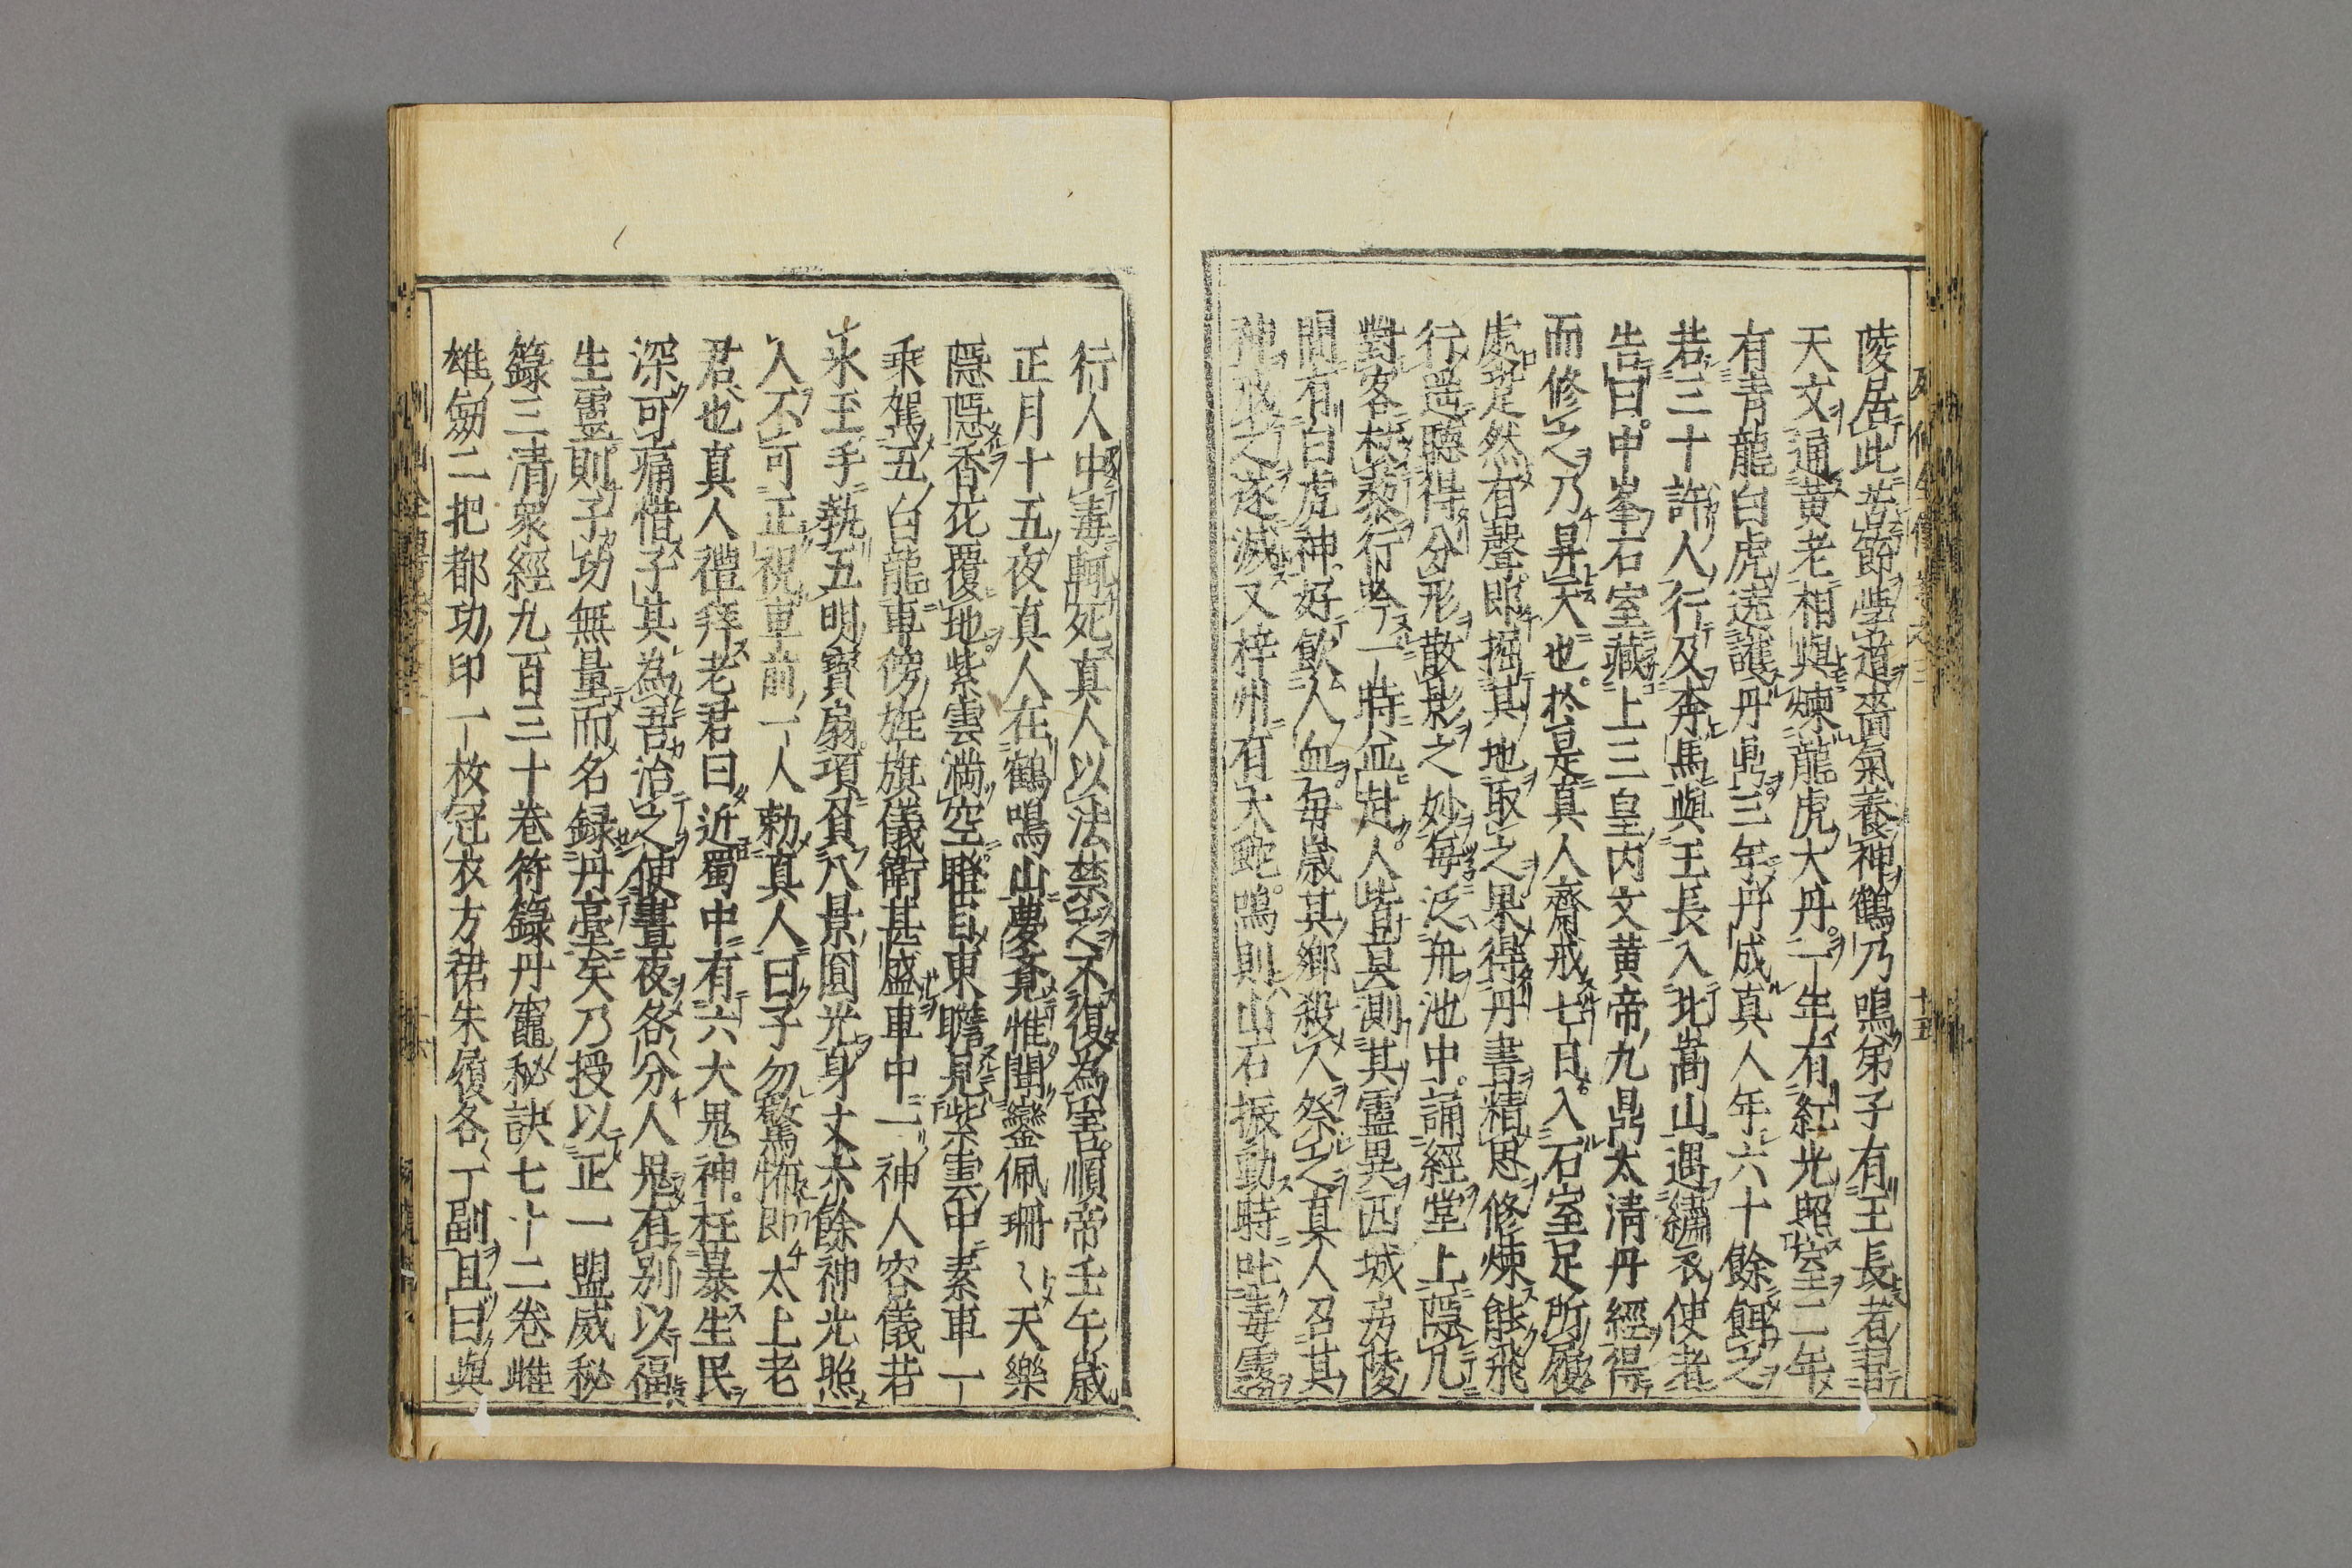 陵居此苦節學道嗇氣養神鶴乃鳴弟子有王長者習
天文通黄老相與煉龍虎大丹一年有紅光照室二年
有青龍白虎遶護丹鼎三年丹成真人年六十餘餌之
若三十許人行及奔馬與王長入北嵩山遇繡衣使者
告曰中峯石室藏上三皇内文黄帝九鼎太清丹經得
而修之乃昇天也於是真人齋戒七日入石室足所履
處跫然有聲即掘其地取之果得丹書精思修煉能飛
行遥聽得分形散影之妙毎泛舟池中誦經堂上隠几
對客杖藜行吟一時並赴人皆莫測其靈異西城房陵
間有白虎神好飲人血毎歳其郷殺人祭之真人召其
神戒之遂滅又梓州有大蛇鳴則山石振動時吐毒霧
行人中毒輒死真人以法禁之不復為害順帝壬午歳
正月十五夜真人在鶴鳴山夢覺惟聞鑾佩珊〻天樂
隠隠香花覆地紫雲満空聡目東瞻見紫雲中素車一
乗駕五白龍車傍旌旗儀衛甚盛車中一神人容儀若
氷玉手執五明寶扇項負八景圓光身丈六餘神光照
人不可正視車前一人勅真人曰子勿驚怖即太上老
君也真人禮拜老君曰近蜀中有六大鬼神枉暴生民
深可痛惜子其為吾治之使晝夜各分人鬼有別以福
生靈則子功無量而名録丹臺矣乃授以正一盟威秘
籙三清衆經九百三十巻符籙丹竈秘訣七十二巻雌
雄劔二把都功印一枚冠衣方裙朱履各一副且曰與